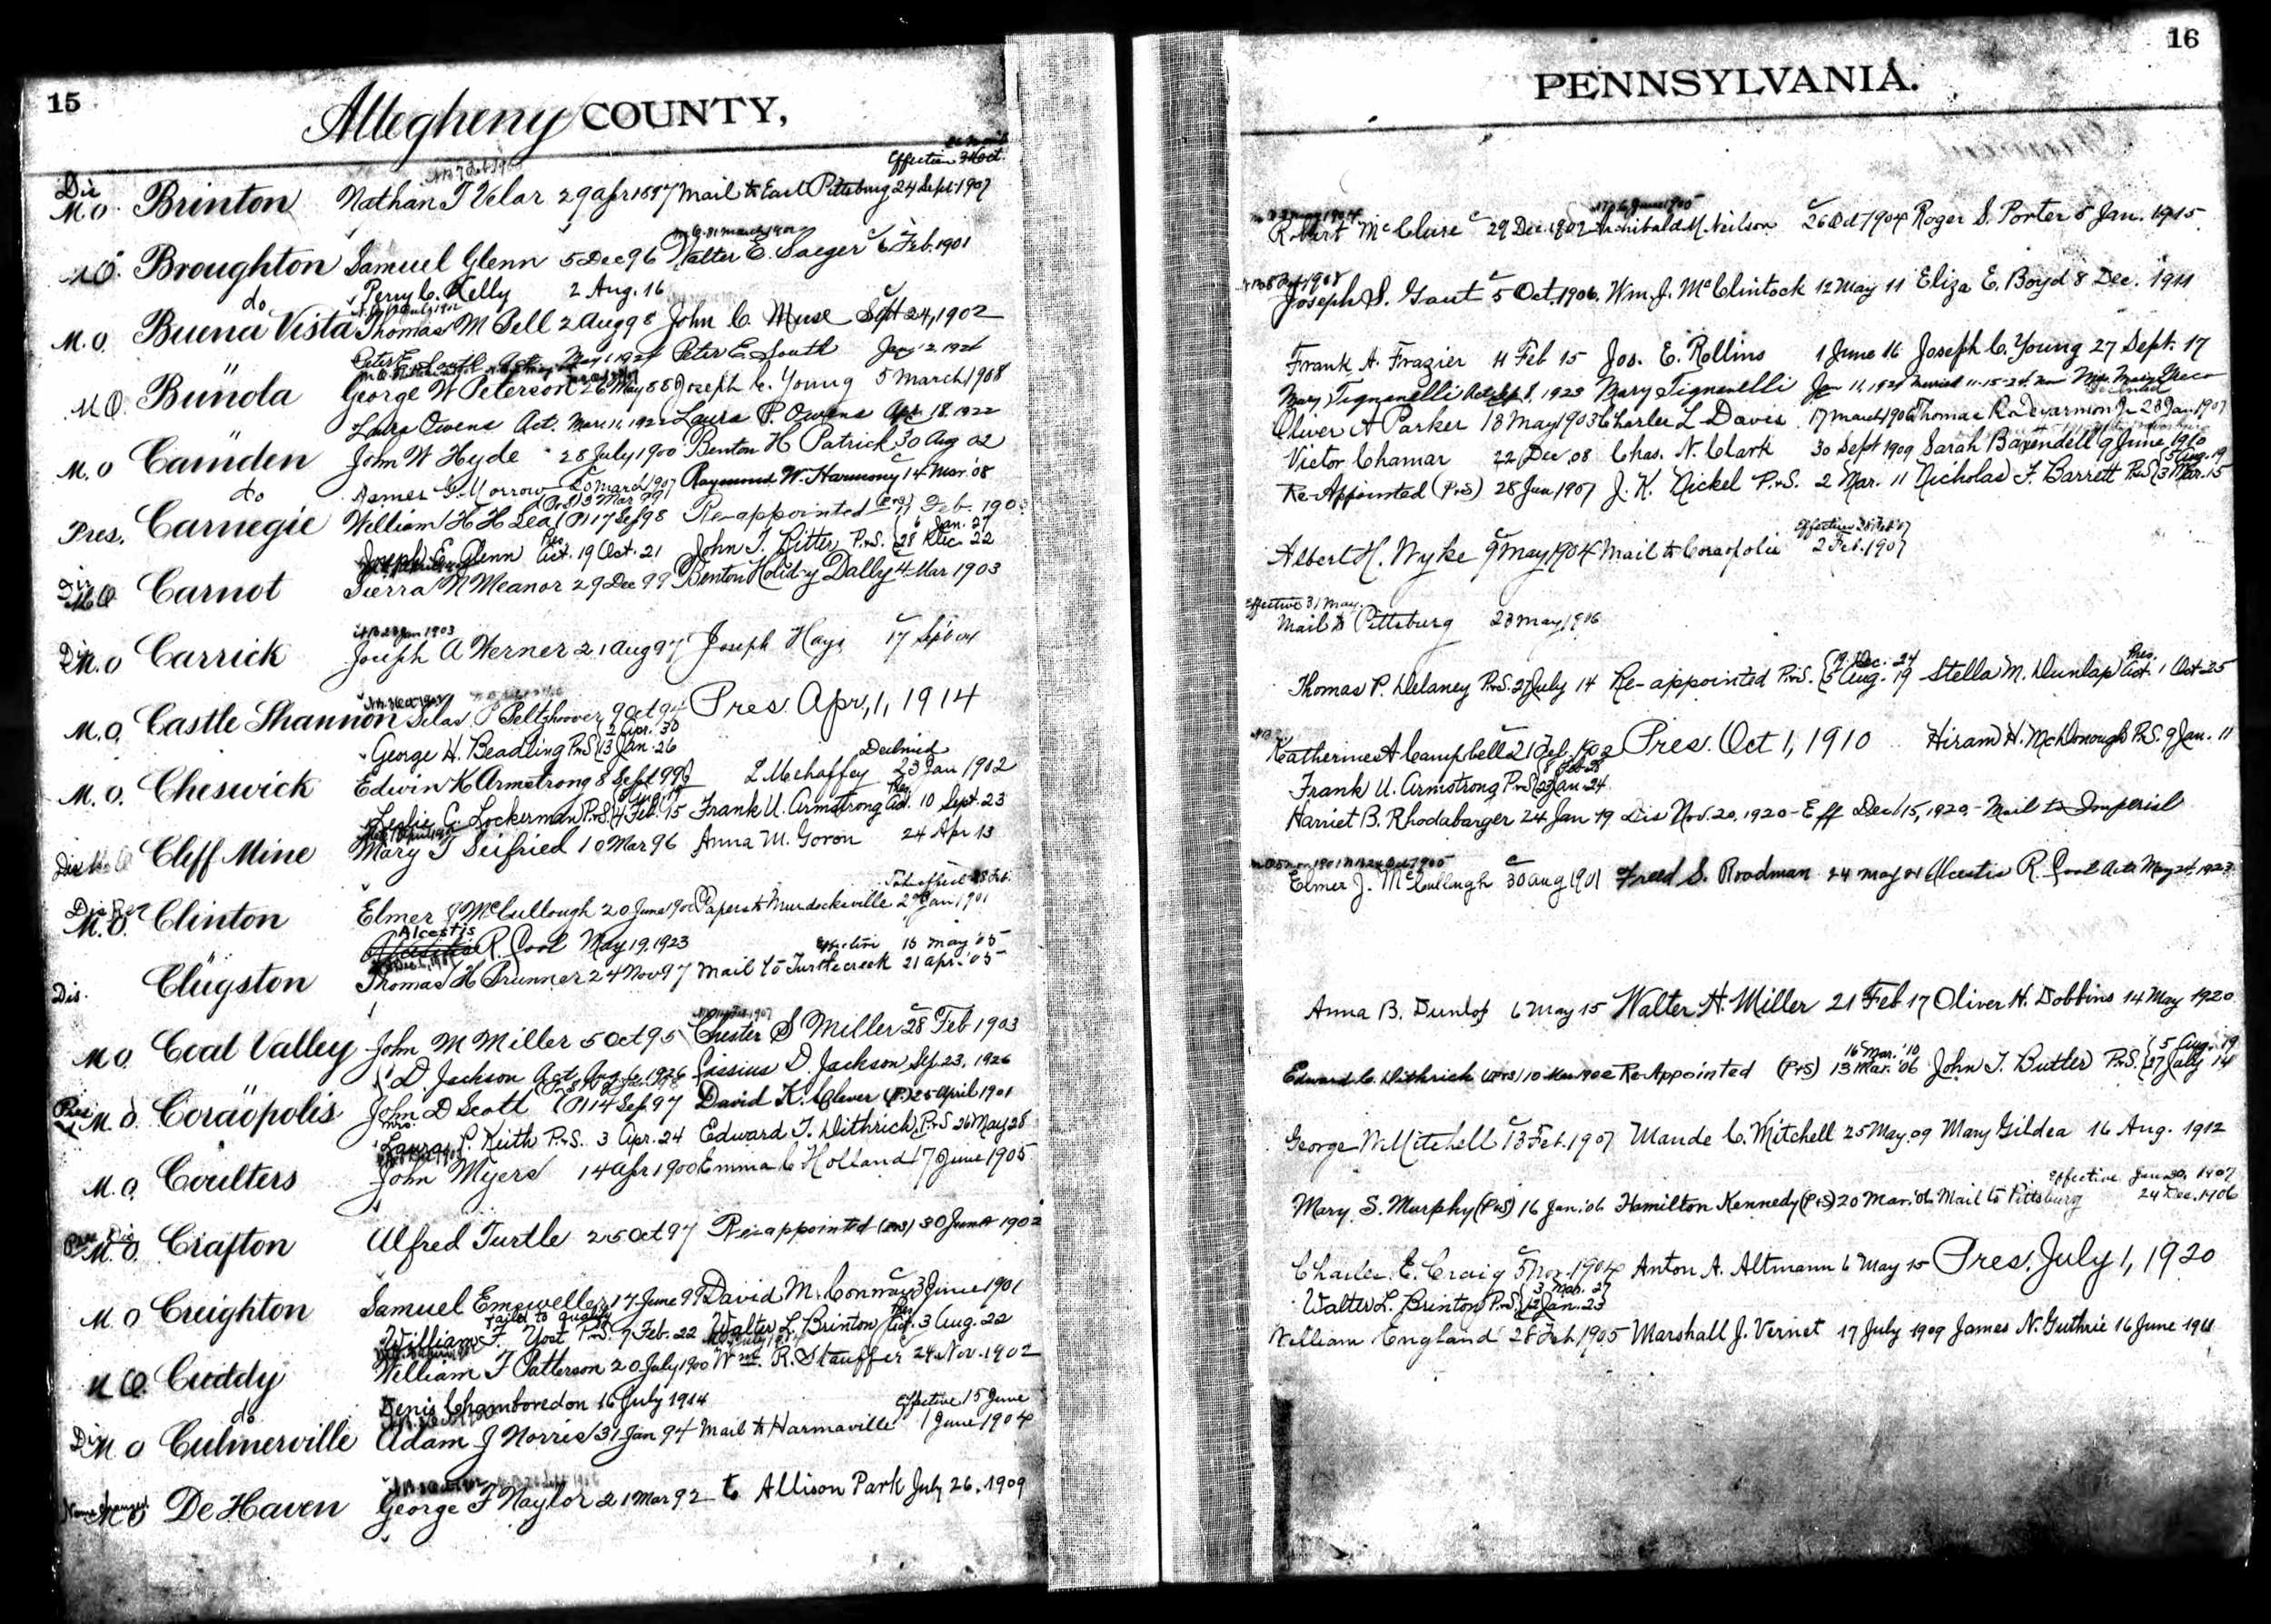 15
Allegheny COUNTY,
Effective
Dis
M.O. Brinton Nathan T Velar 29 Apr 1897 Mail to East Pittsburg 24 Sept. 1907
M.O. Broughton Samuel Glenn 5 Dec 96 Walter E. Saeger 6 Feb. 1901
do Perry C. Kelly 2 Aug. 16
M.O. Buena Vista Thomas M Bell 2 Aug 98 John C. Muse Sept 24, 1902
Peter E. South Act. May 1, 1924 Peter E. South Jany 2 1926
M.O. Bunola George W Peterson 26 May 88 Joseph C. Young 5 March 1908
Laura Owens Act. Mar 11, 1922 Laura P. Owens Apr. 18. 1922
M.O Camden John W Hyde 28 July 1900 Benton H Patrick 30 Aug 02
do G. Morrow 20 March 1907 Raymond W. Harmony 14 Mar. '08
Pres. Carnegie William H H Lea (P) 17 Sep 98 Re-appointed (P&S) Feb. 190
Joseph E. Glenn Act. 19 Oct. 21 John T. Bitter P.&S. { 6 Jan. 27 28 Dec. 22
Dis
M.O Carnot Sierra N Meanor 29 Dec 99 Benton Holidy Dally 4 Mar 1903
Dis M.O Carrick Joseph A Werner 21 Aug 97 Joseph Hays 17 Sept 04
M.O. Castle Shannon Selar P Beltzhoover 9 Oct 94 Pres. Apr, 1, 1914
George H. Beadling P&S { 2 Apr. 30 13 Jan. 26
Declined
M.O. Cheswick Edwin K Armstrong 8 Sept 99 L Mehaffey 23 Jan 1902
Leslie C. Lockerman P.&S. 4 Feb. 15 Frank U. Armstrong Act. 10 Sept. 23
Cliff Mine Mary T Seifried 10 Mar 96 Anna M. Goron 24 Apr 13
M.O. Clinton Elmer J McCullough 20 June 1900 Papers to Murdocksville 29 Jan 1901
Alcestis
R. Pool May 19, 1923
Effective 15 May '05
Dis. Clugston Thomas H Brunner 24 Nov 97 Mail to Turtlecreek 21 Apr. '05
M.O. Coal Valley John M Miller 5 Oct 95 Chester S Miller 28 Feb 1903
D. Jackson Act. Aug 6, 1926 Cassius D. Jackson Sep. 23, 1926
Pres M.O. Coraopolis John D Scott (P) 14 Sep. 97 David K. Clever (P.) 25 April 1901
Mrs.
Laura P. Keith P.&S. 3 Apr. 24 Edward T. Dithrich P.&S 26 May 28
M.O. Coulters John Myers 14 Apr 1900 Emma C Holland 17 June 1905
Pres Dis
M.O. Crafton Alfred Turtle 25 Oct 97 Re-appointed (P&S) 30 June 1902
M.O Creighton Samuel Empweller 17 June 99 David M. Conway 3 June 1901
failed to qualify
William F. Yost P.&S. 7 Feb. 22 Walter L. Brinton Act. 3 Aug. 22
M.O. Cuddy William F Patterson 20 July 1900 Wm. R. Stauffer 24 Nov. 1902
do Denis Chamboredon 16 July 1914
Effective 15 June
Dis M.O Culmerville Adam J Norris 31 Jan 94 Mail to Harmaville 1 June 1904
Name changed
M.O De Haven George F Naylor 21 Mar 92 to Allison Park July 26, 1909
16
PENNSYLVANIA.
Robert McClure 29 Dec. 1902 Archibald M. Neilson 26 Oct 1904 Roger S. Porter 5 Jan. 1915
Joseph S. Gant 5 Oct. 1906. Wm. J. McClintock 12 May 11 Eliza E. Boyd 8 Dec. 1911
Frank A. Frazier 4 Feb 15 Jos. E. Rollins 1 June 16 Joseph C. Young 27 Sept. 17
Mary Tignanelli Act. Sep 8, 1923 Mary Tignanelli Jan 11, 1924 Married 11-15-24 now Mrs. Mary Greco
Oliver A Parker 18 May 1903 Charles L Davis 17 March 1906 Thomas R. Jr 28 Jan. 1907
Victor Chamar 22 Dec 08 Chas. N. Clark 30 Sept 1909 Sarah Baxendell 9 June 1910
Re-Appointed (P&S) 28 Jan 1907 J. K. Nickel P.&S. 2 Mar. 11 Nicholas F. Barrett P&S { 5 Aug. 19 3 Mar. 15
Albert H. Wyke 9 May 1904 Mail to Coraopolis 2 Feb. 1907
Effective 31 May.
Mail to Pittsburg 23 May 1906
Thomas P. Delaney P.&S. 27 July 14 Re-appointed P.&S. { 19 Dec. 24 5 Aug. 19 Stella M. Dunlap Act. 1 Oct. 25
Katherine A Campbell 21 Feb. 1902 Pres. Oct 1, 1910 Hiram H. McDonough P.&S. 9 Jan. 11
Frank U. Armstrong P.&S { 8 Feb 28 23 Jan. 24
Harriet B. Rhodabarger 24 Jan 19 Dis Nov. 20, 1920 - Eff Dec 15, 1920 - Mail to Imperial
Elmer J. McCullough 30 Aug 1901 Freed S. Roadman 24 May 21 Alcestis R. Pool Act. May 24, 1923
Anna B. Dunlop 6 May 15 Walter H. Miller 21 Feb 17 Oliver H. Dobbins 14 May 1920
Edward C. Dithrich (P&S) 10 Mar 1902 Re-Appointed (P&S) 16 Mar. '10 13 Mar. '06 John T. Butler P&S. { 5 Aug. 19 27 July 14
George W Mitchell 13 Feb. 1907 Maude C. Mitchell 25 May, 09 Mary Gildea 16 Aug. 1912
Effective Jan 30, 1907
Mary S. Murphy (P&S) 16 Jan. '06 Hamilton Kennedy (P&S) 20 Mar. '06 Mail to Pittsburg 24 Dec. 1906
Charles E. Craig 5 Nov. 1904 Anton A. Altmann 6 May 15 Pres. July 1, 1920
Walter L. Brinton P.&S { 3 Mar. 27 12 Jan. 23
William England 28 Feb. 1905 Marshall J. Vernet 17 July 1909 James N. Guthrie 16 June 1911